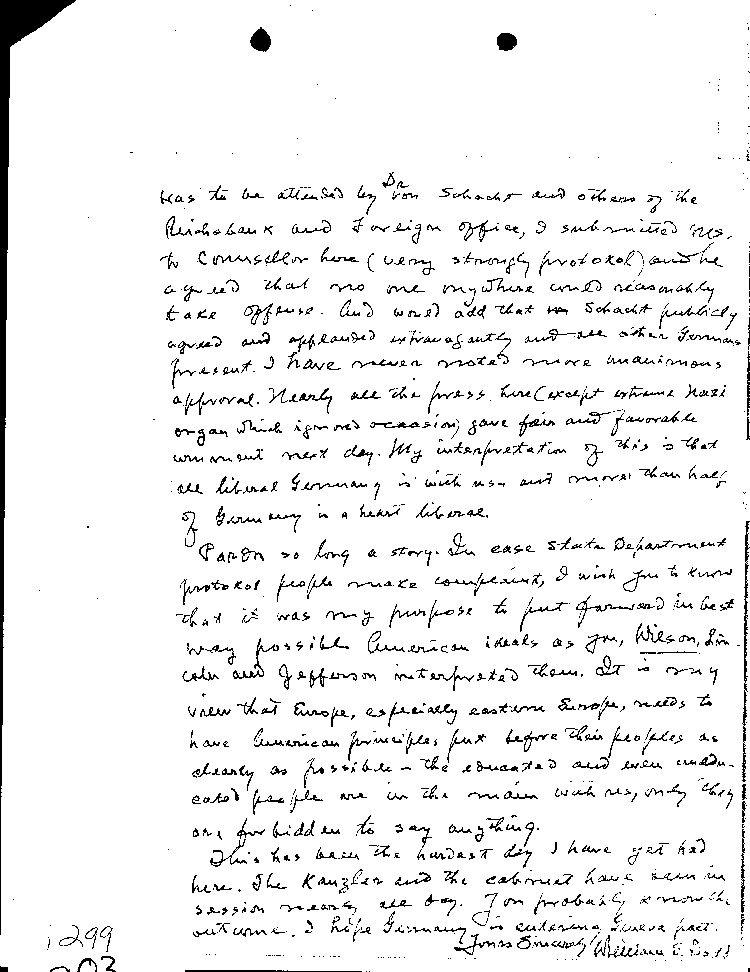 Dr
was to be attended by von Schacht and others of the
Reichsbank and Foreign office, I submitted ms.
to Counsellor here (very strongly protokol) and he
agreed that no one anywhere could reasonably
take offense. And would add that Schacht publicly
agreed and applauded extravagantly and all other Germans
present. I have never noted more unanimous
approval. Nearly all the press here (except extreme Nazi
organ which ignored occasion) gave fair and favorable
comment next day. My interpretation of this is that
all liberal Germany is with us - and more than half
of Germany is a heart liberal.
Pardon so long a story. In case State Department
protokol people make complaint, I wish you to know
that it was my purpose to put forward in best
way possible American ideals as you, Wilson, Lin-
coln and Jefferson interpreted them. It is my
view that Europe, especially eastern Europe, needs to
have American principles put before their peoples as
clearly as possible - the educated and even unedu-
cated people are in the main with us, only they
are forbidden to say anything.
This has been the hardest day I have yet had
here. The Kanzler and the cabinet have been in
session nearly all day. You probably know the
outcome. I hope Germany is entering Geneva pact.
Yours Sincerely, William E. Dodd
1299
203